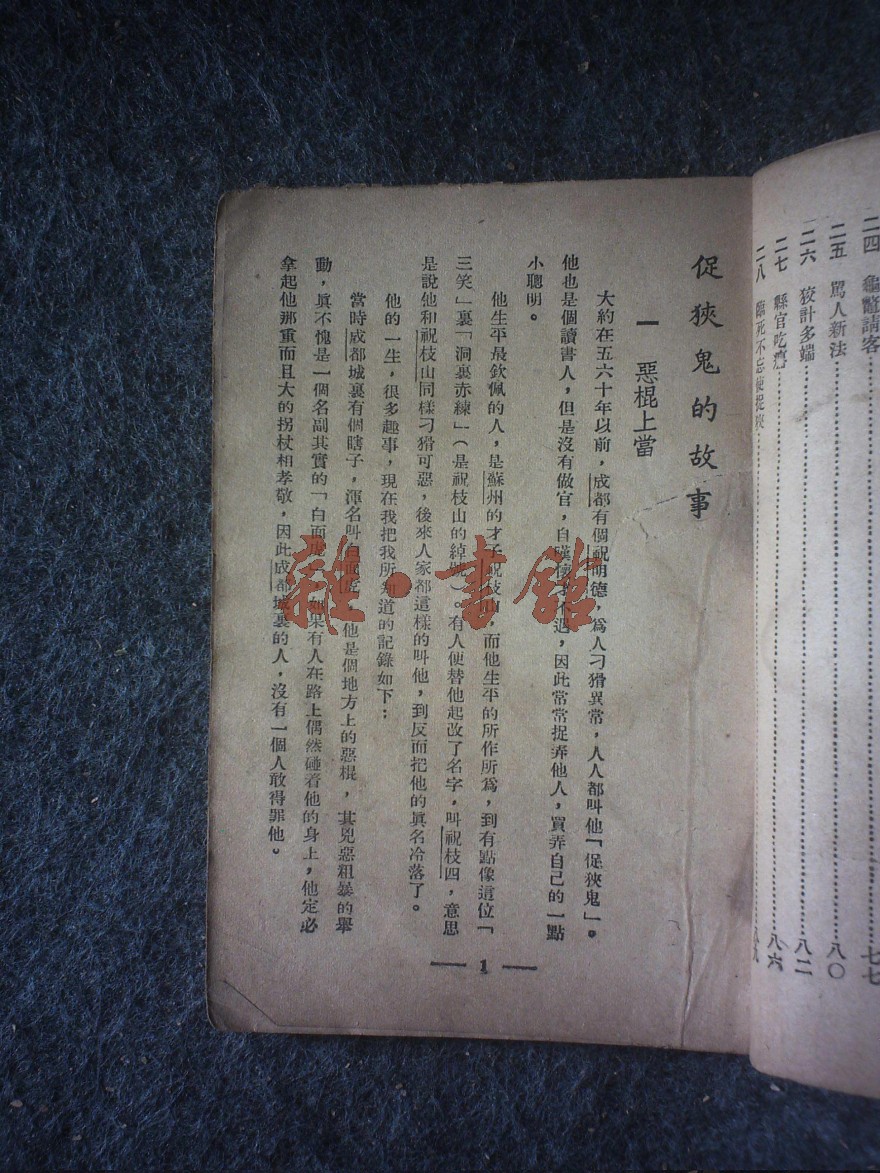 二四　龜鼈請客………七七
二五　罵人新法………八〇
二六　狡計多端………八二
二七　縣官吃癟………八六
二八　臨死不忘便捉狹………
促狹鬼的故事
一　惡棍上當
大約在五六十年以前，成都有個祝明德，爲人刁猾異常，人人都叫他「促狹鬼」。
他也是個讀書人，但是沒有做官，自嘆懷才不遇，因此常常捉弄他人，買弄自己的一點
小聰明。
他生平最欽佩的人，是蘇州的才子祝枝山，而他生平的所作所爲，到有點像這位「
三笑」裏「洞裏赤練」（是祝枝山的綽號）。有人便替他起改了名字，叫祝枝四，意思
是說他和祝枝山同樣刁猾可惡，後來人家都這樣的叫他，到反而把他的眞名冷落了。
他的一生，很多趣事，現在我把我所知道的記錄如下：
當時成都城裏有個瞎子，渾名叫白面虎，他是個地方上的惡棍，其兇惡粗暴的舉
動，眞不愧是一個名副其實的「白面虎」如果有人在路上偶然碰着他的身上，他定必
拿起他那重而且大的拐杖相孝敬，因此成都城裏的人，沒有一個人敢得罪他。
1
雜·書館